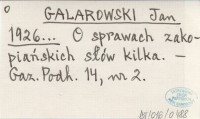 GALAROWSKI Jan
1926... O sprawach zako-
piańskich słów kilka. —
Gaz. Podh. 14, nr 2.